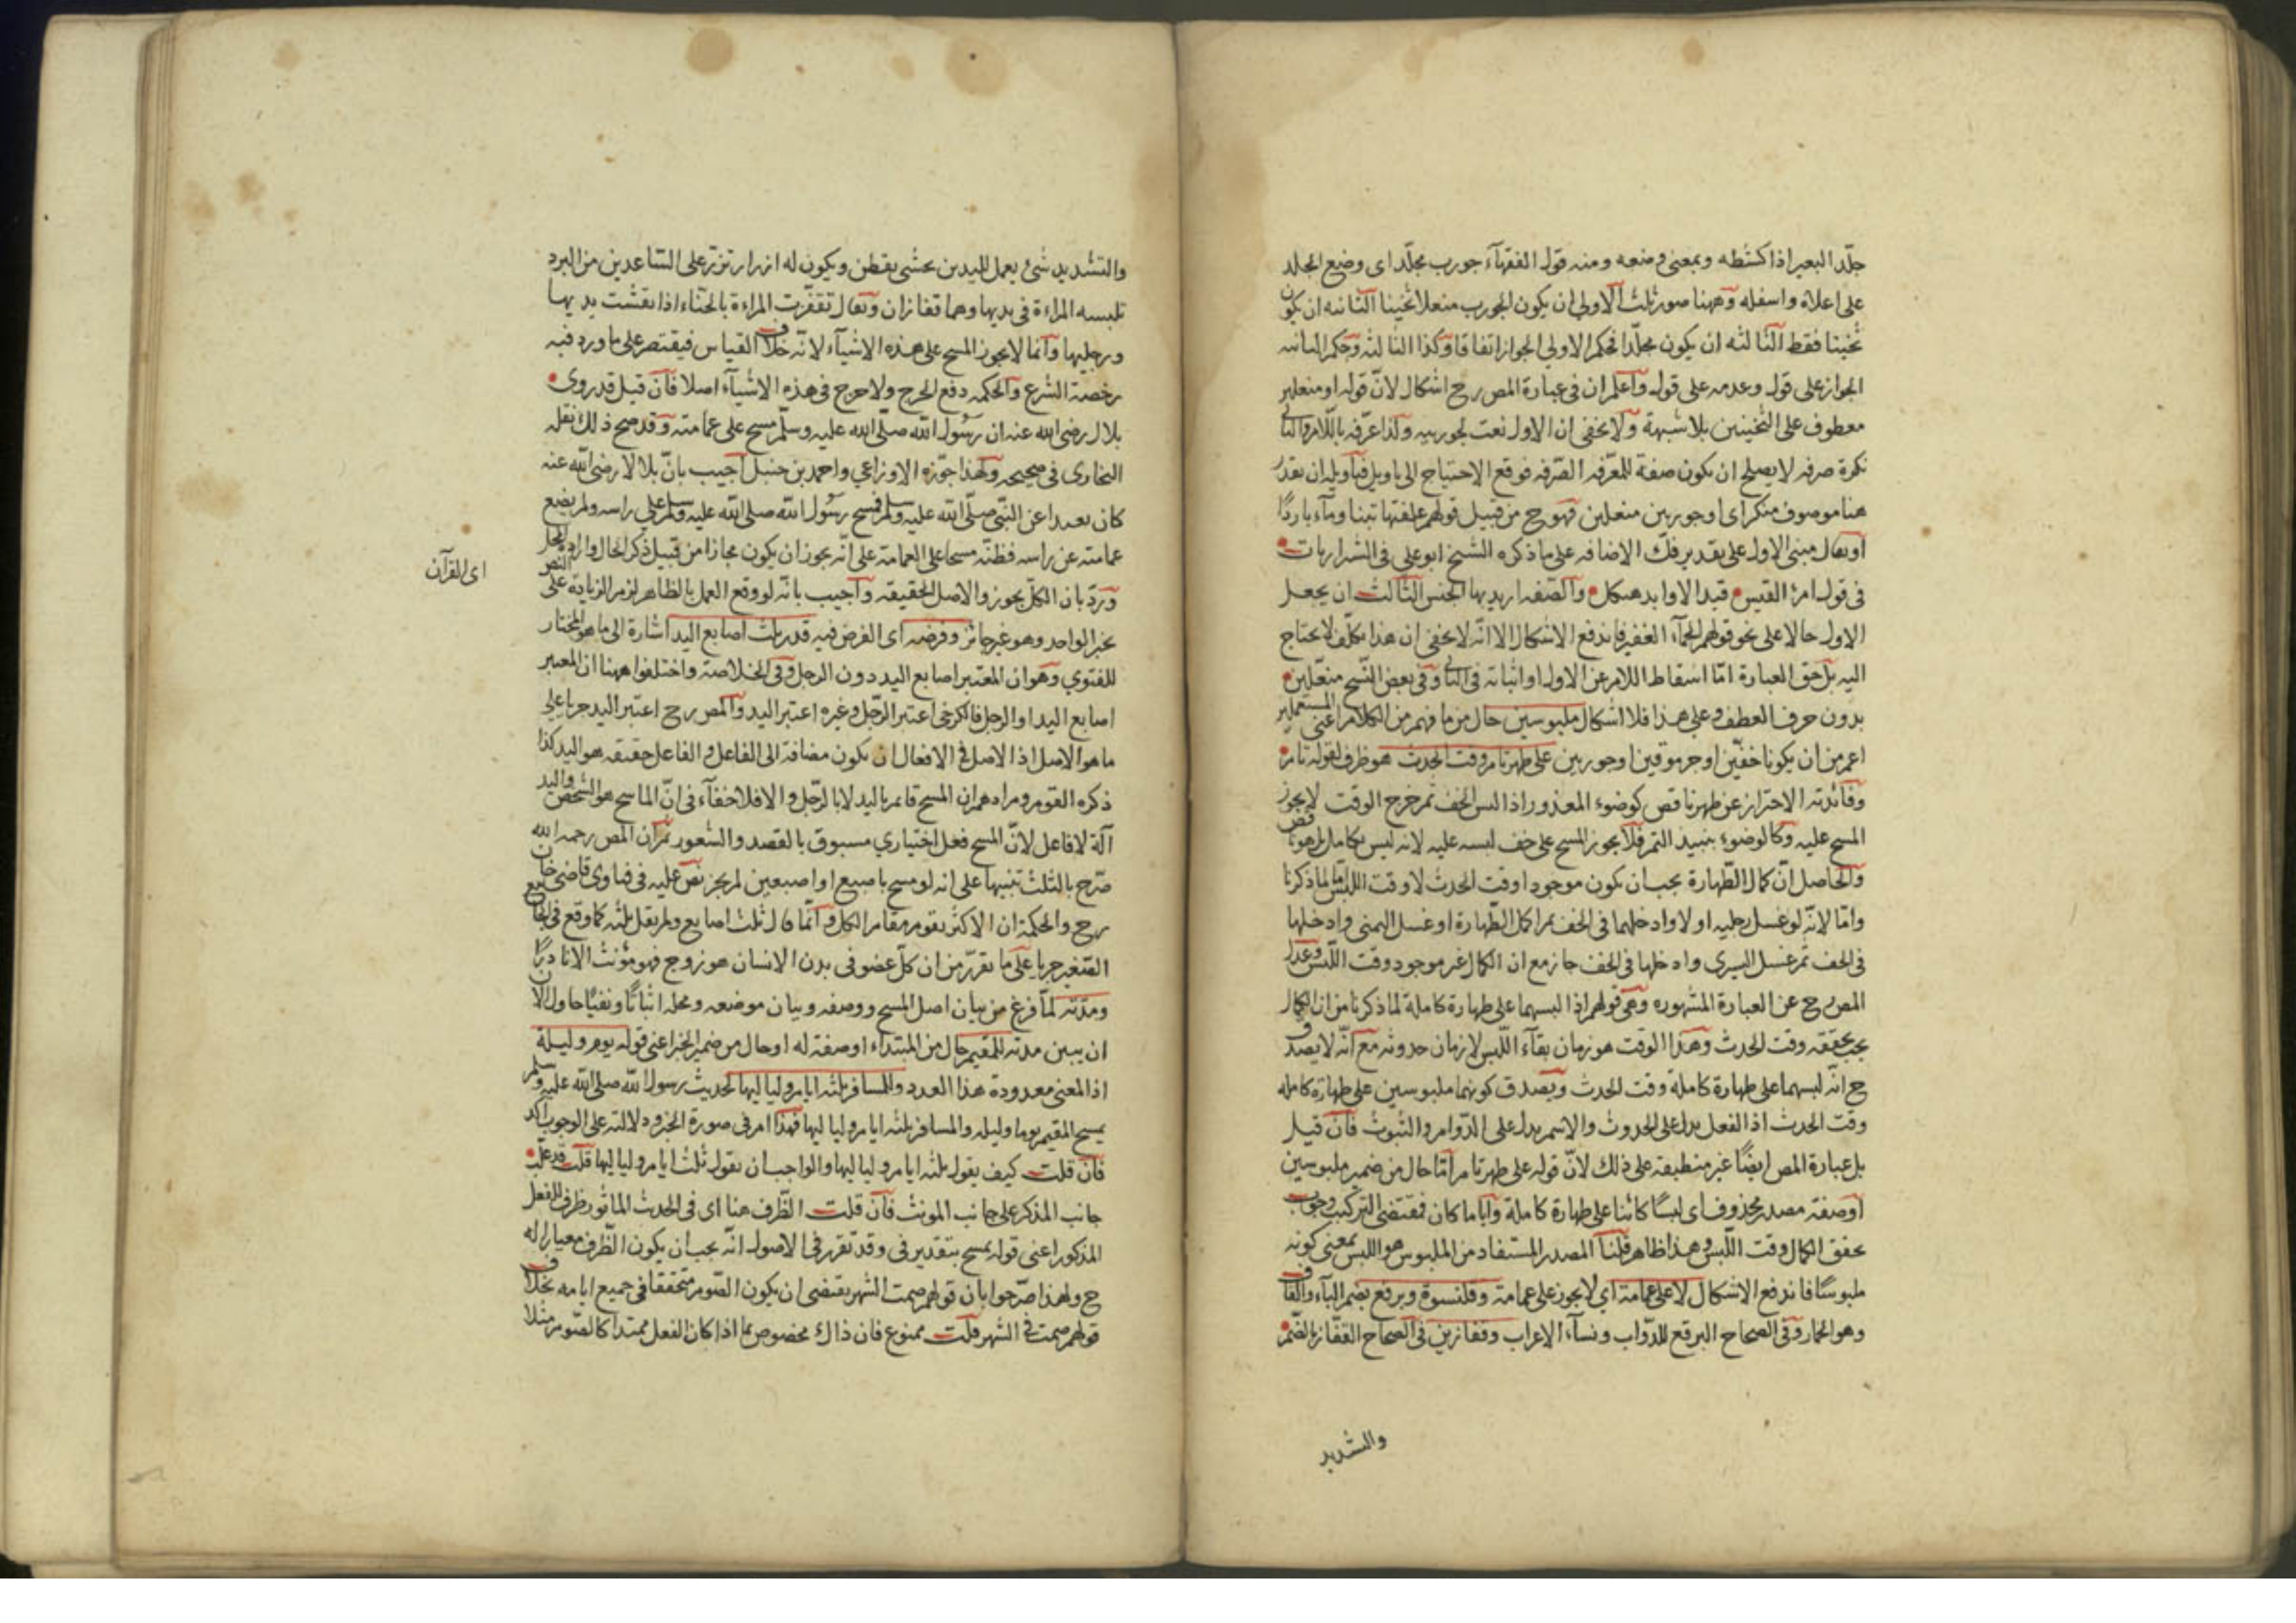 جلّد البعير اذا كشطه وبمعنى وضعه ومنه قول الفقهآء جورب مجلّد اى وضع الجلد
على اعلاه واسفله وههنا صور ثلث الاولى ان يكون الجورب منعلا ثخينا الثانيه ان يكون
ثخينا فقط الثالثه ان يكون مجلّدا فحكم الاولى الجواز اتفاقا وكذا الثالثه وحكم الثانيه
الجواز على قول وعدمه على قول واعلم ان فى عبارة المص رح اشكال لانّ قوله او منعلين
معطوف على الثخينين بلا شبهة ولا يخفى ان الاول نعت لجوربيه ولذا عرّفه باللام والثانى
نكرة صرفه لا يصلح ان يكون صفة للمعّرفه الصّرفه فوقع الاحتياج الى تاويل فتاويله ان يقدر
هنا موصوف منكر اى او جوربين منعلين فهو ح من قبيل قولهم علفتها تبنا ومآء باردًا
او يقال مبنى الاول على تقدير فكّ الاضافه على ما ذكره الشيخ ابو على فى الشرازيات
فى قول امرئ القيس قيد الاوابد هيكل والصّفه اريد بها الجنس الثالث ان يجعل
الاول حالا على نحو قولهم الجمآء الغفير فاندفع الاشكال الا انّه لا يخفى ان هذا تكلّف لا يحتاج
اليه بل حق العبارة امّا اسقاط اللام عن الاول او اثباته فى الثانى وفى بعض النّسخ منعّلين
بدون حرف العطف وعلى هذا فلا اشكال ملبوسين حال من ما فهم من الكلام اعنى المستعملين
اعم من ان يكونا خفّين او جرموقين او جوربين على طهر تام وقت الحدث هو ظرف لقوله تام
وفائدته الاحتراز عن طهر ناقص كوضوء المعذور اذا لبس الخف ثم خرج الوقت لا يجوز
المسح عليه وكالوضوء بنبيذ التمر فلا يجوز المسح على خف لبسه عليه لانه ليس بكامل بل هو ناقص
والحاصل انّ كمال الطّهارة يجب ان يكون موجودا وقت الحدث لا وقت اللبس امّا لما ذكرنا
وامّا لانّه لو غسل رجليه اولا وادخلهما فى الخف ثم اكمل الطّهارة او غسل اليمنى وادخلها
فى الخف ثم غسل اليسرى وادخلها فى الخف جاز مع ان الكمال غير موجود وقت اللّبس وعدل
المص رح عن العبارة المشهوره وهى قولهم اذا لبسهما على طهارة كاملة لما ذكرنا من ان الكمال
يجب تحققه وقت الحدث وهذا الوقت هو زمان بقآء اللّبس لا زمان حدوثه مع انّه لا يصدق
ح انّه لبسهما على طهارة كاملة وقت الحدث ويصدق كونهما ملبوسين على طهارة كامله
وقت الحدث اذ الفعل يدل على الحدوث والاسم يدل على الدّوام والثبوت فان قيل
بل عبارة المص ايضًا غير منطبقه على ذلك لانّ قوله على طهر تام امّا حال من ضمير ملبوسين
او صفة مصدر محذوف اى لبسًا كائنا على طهارة كاملة وايا ما كان فمقتضى التركيب وجوب
تحقق الكمال وقت اللّبس وهذا ظاهر قلنا المصدر المستفاد من الملبوس هو اللبس بمعنى كونه
ملبوسًا فاندفع الاشكال لا على عمامة اى لا يجوز على عمامة وقلنسوة وبرقع بضم البآء والقاف
وهو الخمار وفى الصحاح البرقع للدّواب ونسآء الاعراب وقفازين فى الصحاح القفّاز بالضّم
والتشديد
والتشديد شئ يعمل لليدين يحشى بقطن ويكون له ازرار تزرّ على السّاعدين من البرد
تلبسه المراءة فى يديها وهما قفازان ويقال تقفّزت المراءة بالحنّاء اذا نقشت يديها
ورجليها وانّما لا يجوز المسح على هذه الاشيآء لانّه خلاف القياس فيقتصر على ما ورد فيه
رخصة الشرع والحكمه دفع الحرج ولا حرج فى هذه الاشيآء اصلا فان قيل قد روى
بلال رضى الله عنه ان رسُول الله صلّى الله عليه وسلّم مسح على عمامته وقد صح ذلك نقله
البخارى فى صحيحه ولهذا جوّزه الاوزاعي واحمد بن حنبل اجيب بانّ بلالا رضى الله عنه
كان بعيدا عن النّبى صلّى الله عليه وسلم فمسح رسُول الله صلى الله عليه وسلم على راسه ولم يضع
عمامته عن راسه فظنّه مسحا على العمامة على انّه يجوز ان يكون مجازا من قبيل ذكر الحال وارادة المحل
وردّ بان الكلّ يجوز والاصل الحقيقه واجيب بانّه لو وقع العمل بالظاهر لزم الزيادة على النص
اى القرآن
بخبر الواحد وهو غير جائز وفرضه اى الفرض فيه قدر ثلث اصابع اليد اشارة الى ما هو المختار
للفتوي وهو ان المعتبر اصابع اليد دون الرجل وفى الخلاصة واختلفوا ههنا ان المعتبر
اصابع اليد او الرجل فالكرخى اعتبر الرّجل وغيره اعتبر اليد والمص رح اعتبر اليد جريا على
ما هو الاصل اذ الاصل فى الافعال ان يكون مضافة الى الفاعل والفاعل حقيقه هو اليد كذا
ذكره القوم ومرادهم ان المسح قائم باليد لا بالرّجل والا فلا خفآء فى انّ الماسح هو الشخص واليد
آلة لا فاعل لانّ المسح فعل اختياري مسبوق بالقصد والشعور ثم ان المص رحمه الله
صرّح بالثلث تنبيها على انه لو مسح باصبع او اصبعين لم يجز نصّ عليه فى فتاوى قاضى خان
رح والحكمة ان الاكثر يقوم مقام الكل وانّما قال ثلث اصابع ولم يقل ثلثه كما وقع فى الجامع
الصّغير جريا على ما تقرّر من ان كلّ عضو فى بدن الانسان هو زوج فهو مؤنث الا نادرًا
ومدّته لمّا فرغ من بيان اصل المسح ووصفه وبيان موضعه ومحله اثباتًا ونفيًا حاول الان
ان يبين مدته للمقيم حال من المبتداء او صفة له او حال من ضمير الخبر اعنى قوله يوم وليلة
اذ المعنى معدودة هذا العدد وللمسافر ثلثه ايام ولياليها لحديث رسول الله صلى الله عليه وسلم
يمسح المقيم يوما وليله والمسافر ثلثه ايام ولياليها فهذا امر فى صورة الخبر ودلالته على الوجوب آكد
فان قلت كيف يقول ثلثه ايام ولياليها والواجب ان يقول ثلث ايام ولياليها قلت قد غلّب
جانب المذكر على جانب المونث فان قلت الظّرف هنا اى فى الحديث الماثور ظرف للفعل
المذكور اعنى قوله يمسح بتقدير فى وقد تقرر فى الاصول انّه يجب ان يكون الظّرف معيارا له
ح ولهذا صرّحوا بان قولهم صمت الشهر يقتضى ان يكون الصّوم متحققا فى جميع ايامه بخلاف
قولهم صمت فى الشهر قلت ممنوع فان ذاك مخصوص بما اذا كان الفعل ممتدا كالصّوم مثلا